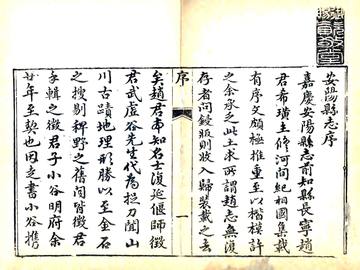 安陽縣志序
嘉慶安陽縣志前知縣長寧趙
君希璜主修河間紀相國集載
有序文頗極推重至以楷模許
之余承之此土求所謂趙志無復
存者問鋟版則收入歸裝載之去
矣趙君本知名士復延偃師
君武虛谷先生代為操刀闗山
川古蹟地理形勝以至金石
之搜剔稗野之舊聞皆徵君
手輯之徵君子小谷明府余
廿年至契也因走書小谷攜
序
一